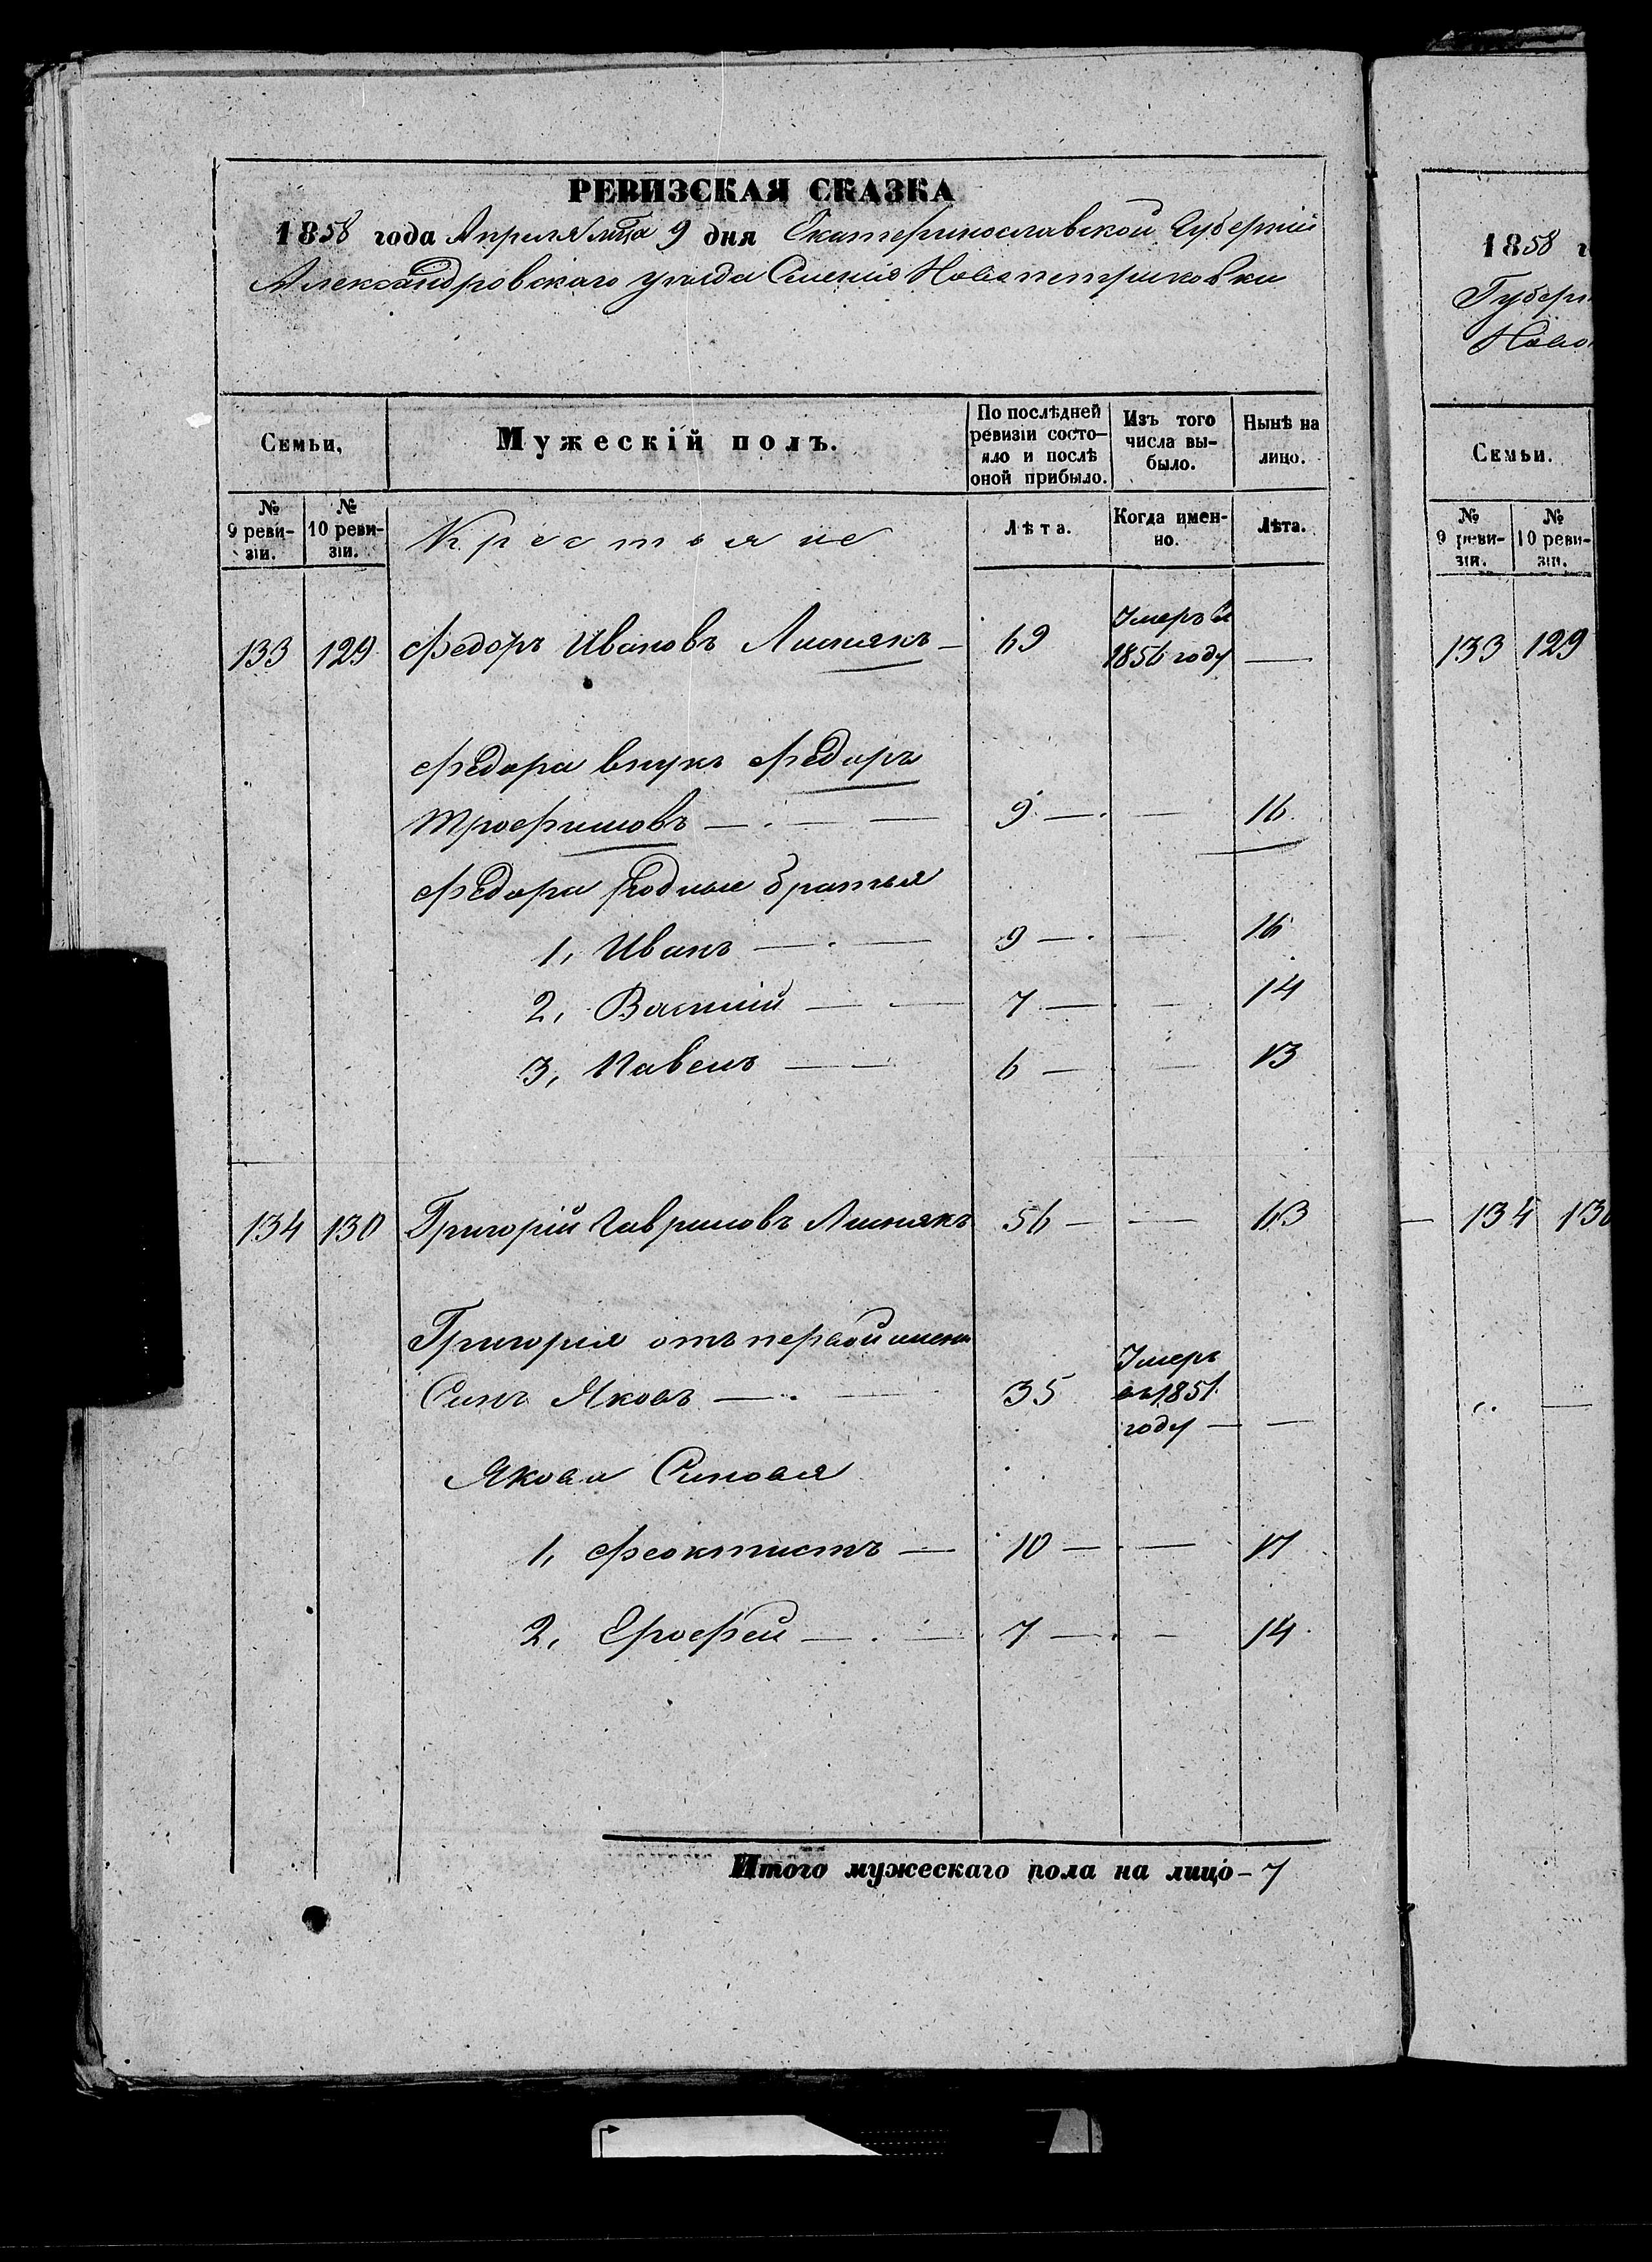 РЕВИЗСКАЯ СКАЗКА
1858 года Апреля м̃ца 9 дня Екатеринославской Губерніи
Александровскаго уезда Селенія Новопетриковки
Семьи, Мужескій полъ. По послѣдней ревизіи состо-яло и послѣ оной прибыло. Изъ того числа вы-было. Нынѣ на лицо.
№ 9 реви-зіи. № 10 реви-зіи. Крестьяне Лѣта. Когда имен-но. Лѣта.
133 129 Федоръ Ивановъ Лиснякъ — 69 Умеръ в 1856 году —
Федора внукъ Федоръ
Трофимовъ — 9 — — 16
Федора родные братья
1, Иванъ — 9 — — 16
2, Василій — 7 — — 14
3, Павелъ — 6 — — 13
134 130 Григорій Гавриловъ Лиснякъ 56 — — 63
Григорія отъ первой жены
Синъ Яковъ — 35 Умеръ въ 1851 году — —
Якова Синовья
1, Феоктистъ — 10 — — 17
2, Ерофей — 7 — — 14
Итого мужескаго пола на лицо — 7
1858 г
Губерн
Ново
Семьи.
№ 9 реви-зіи. № 10 реви-зіи.
133 129
134 130